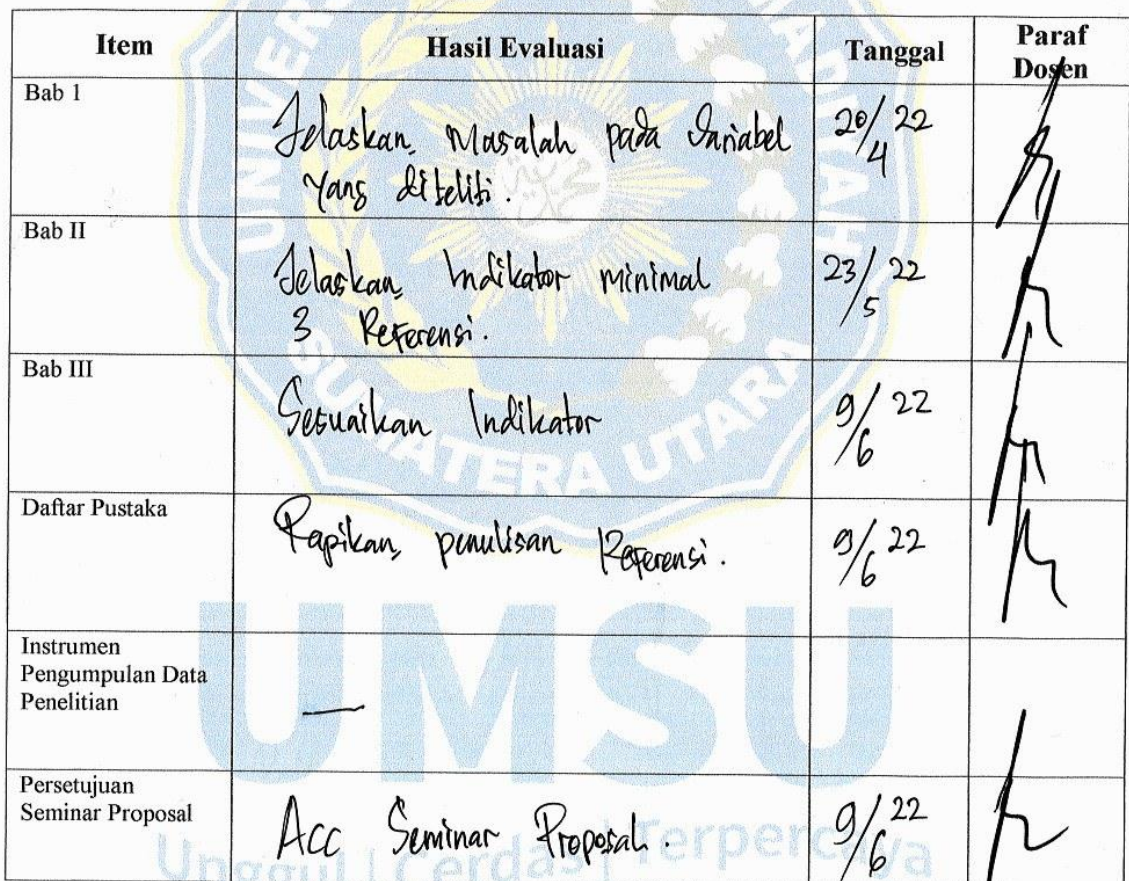 Item Hasil Evaluasi Tanggal Paraf
Dosen
Bab 1
Jelaskan, Masalah pada Variabel 20/4 22
yang diteliti.
Bab II
Jelaskan, Indikator minimal 23/5 22
3 Referensi.
Bab III
Sesuaikan Indikator 9/6 22
Daftar Pustaka
Rapikan, penulisan Referensi. 9/6 22
Instrumen
Pengumpulan Data
Penelitian —
Persetujuan
Seminar Proposal
Acc Seminar Proposal. 9/6 22
SUMATERA UTARA
UMSU
Unggul | Cerdas | Terpercaya